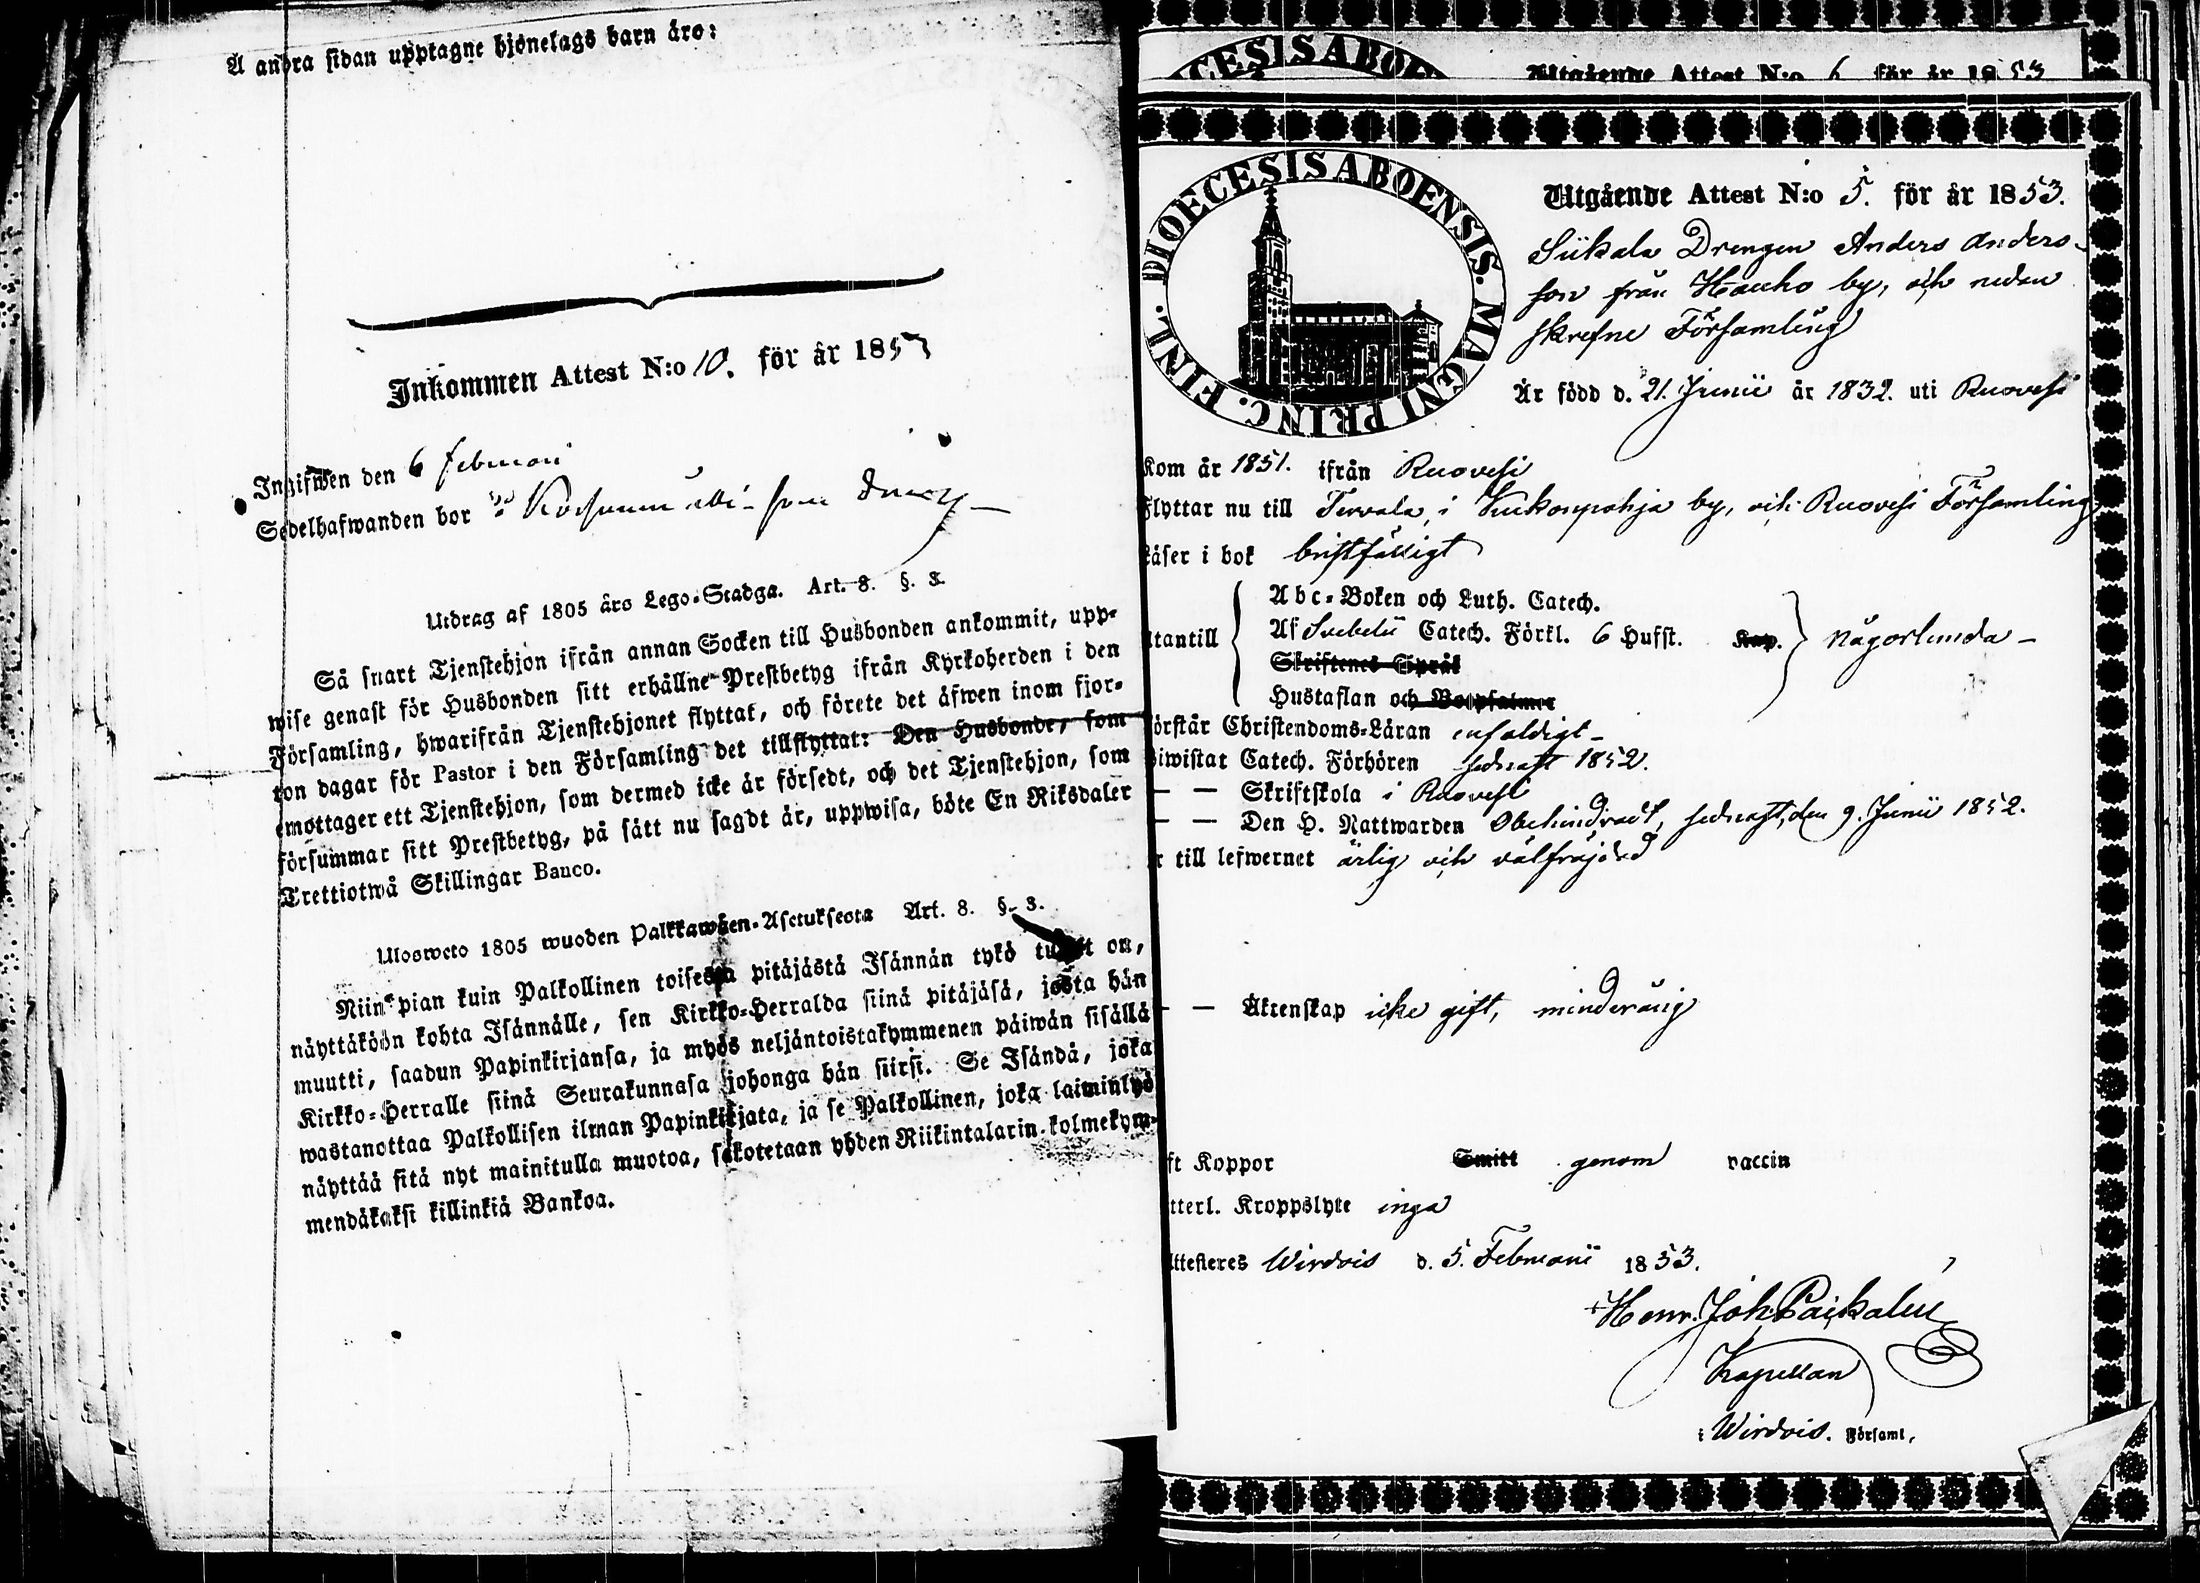 Å andra sidan upptagne hjonelags barn äro:
Inkommen Attest N:o 10. för år 1853
Ingifwen den 6 februari
Sedelhafwanden bor
Utdrag af 1805 års Lego-Stadga. Art. 8. §. 3.
Så snart Tjenstehjon ifrån annan Socken till Husbonden ankommit, upp-
wise genast för Husbonden sitt erhållne Prestbetyg ifrån Kyrkoherden i den
Församling, hwarifrån Tjenstehjonet flyttat, och förete det äfwen inom fjor-
ton dagar för Pastor i den Församling det tillflyttat: Den Husbonde, som
emottager ett Tjenstehjon, som dermed icke är försedt, och det Tjenstehjon, som
försummar sitt Prestbetyg, på sätt nu sagdt är, uppwisa, böte En Riksdaler
Trettiotwå Skillingar Banco.
Ulosweto 1805 wuoden Palkkawäen-Asetuksesta Art. 8. §. 3.
Niin pian kuin Palkollinen toisesta pitäjästä Isännän tykö tullut on,
näyttäköön kohta Isännälle, sen Kirkko-Herralda siinä pitäjäsä, josta hän
muutti, saadun Papinkirjansa, ja myös neljäntoistakymmenen päiwän sisällä
Kirkko-Herralle siinä Seurakunnasa johonga hän siirsi. Se Isändä, joka
wastanottaa Palkollisen ilman Papinkirjata, ja se Palkollinen, joka laiminlyö
näyttää sitä nyt mainitulla muotoa, sakotetaan yhden Riikintalarin kolmekym-
mendäkaksi killinkiä Bankoa.
CESIS ABOE
Utgående Attest N:o 6 för år 1853
DIOECESIS ABOENSIS. MAGNI PRINC. FINL.
Utgående Attest N:o 5. för år 1853.
Siikala Drengen Anders Anders-
son från Hauho by, och nedan
skrefne Församling
Är född d. 21. Junii år 1832. uti Ruovesi
Kom år 1851. ifrån Ruovesi
Flyttar nu till Tervala, i Kukonpohja by, och Ruovesi Församling
Läser i bok bristfälligt
Utantill
Abc-Boken och Luth. Catech.
Af Svebelii Catech. Förkl. 6 Hufst. Kap. någorlunda -
Skriftenes Språk
Hustaflan och Botpsalmer
förstår Christendoms-Läran enfaldigt -
biwistat Catech. Förhören sednast 1852.
— — Skriftskola i Ruovesi
— — Den H. Nattwarden Obehindradt, sednast, den 9. Junii 1852.
r till lefwernet ärlig och välfräjdad
— — Äktenskap icke gift, minderårig
ft Koppor Smitt genom vaccin
tterl. Kroppslyte inga
Attesteres Wirdois d. 5. Februarii 1853.
Henr. Joh. Paikalén
Kapellan
i Wirdois. Församl.